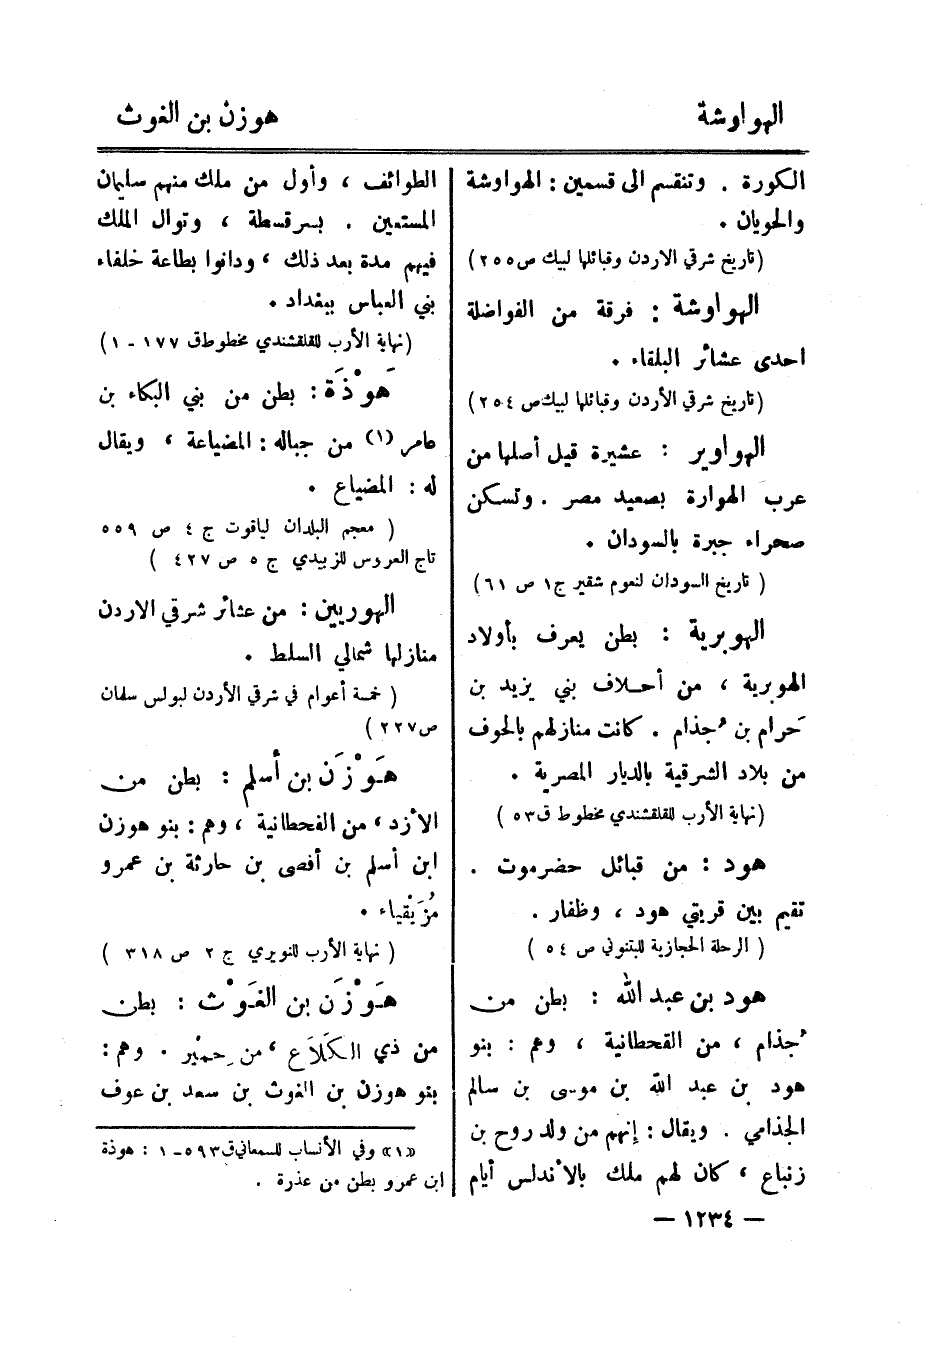 الهواوشة
هوزن بن الغوث
الكورة . وتنقسم الى قسمين : الهواوشة
والحويان .
(تاريخ شرقي الاردن وقبائلها لبيك ص٢٥٥)
الهواوشة : فرقة من الفواضلة
احدى عشائر البلقاء .
(تاريخ شرقي الأردن وقبائلها لبيك ص ٢٥٤)
الهواوير : عشيرة قيل أصلها من
عرب الهوارة بصعيد مصر . وتسكن
صحراء جبرة بالسودان .
( تاريخ السودان لنعوم شقير ج١ ص ٦١)
الهوبرية : بطن يعرف بأولاد
الهوبرية ، من أحلاف بني يزيد بن
حَرام بن جُذام . كانت منازلهم بالحوف
من بلاد الشرقية بالديار المصرية .
(نهاية الأرب للقلقشندي مخطوط ق٥٣ )
هود : من قبائل حضرموت .
تقيم بين قريتي هود ، وظفار .
( الرحلة الحجازية للبتنوني ص ٥٤ )
هود بن عبد الله : بطن من
جُذام ، من القحطانية ، وهم : بنو
هود بن عبد الله بن موسى بن سالم
الجذامي . ويقال : إنهم من ولد روح بن
زنباع ، كان لهم ملك بالأندلس أيام
الطوائف ، وأول من ملك منهم سليمان
المستعين . بسرقسطة ، وتوال الملك
فيهم مدة بعد ذلك ، ودانوا بطاعة خلفاء
بني العباس ببغداد .
(نهاية الأرب للقلقشندي مخطوط ق ١٧٧ - ١)
هَوْذَة : بطن من بني البكاء بن
عامر (١) من جباله : المضياعة ، ويقال
له : المضياع .
( معجم البلدان لياقوت ج ٤ ص ٥٥٩
تاج العروس للزبيدي ج ٥ ص ٤٢٧ )
الهوريين : من عشائر شرقي الاردن
منازلها شمالي السلط .
( خمسة أعوام في شرقي الأردن لبولس سلمان
ص٢٢٧)
هَوْزَن بن أسلم : بطن من
الأزد ، من القحطانية ، وهم : بنو هوزن
ابن أسلم بن أفصى بن حارثة بن عمرو
مُزَيْقِياء .
( نهاية الأرب للنويري ج ٢ ص ٣١٨ )
هَوْزَن بن الغَوْث : بطن
من ذي الكَلَاع ، من حِمْير . وهم :
بنو هوزن بن الغوث بن سعد بن عوف
«١» وفي الأنساب للسمعاني ق ٥٩٣-١ : هوذة
ابن عمرو بطن من عذرة .
— ١٢٣٤ —